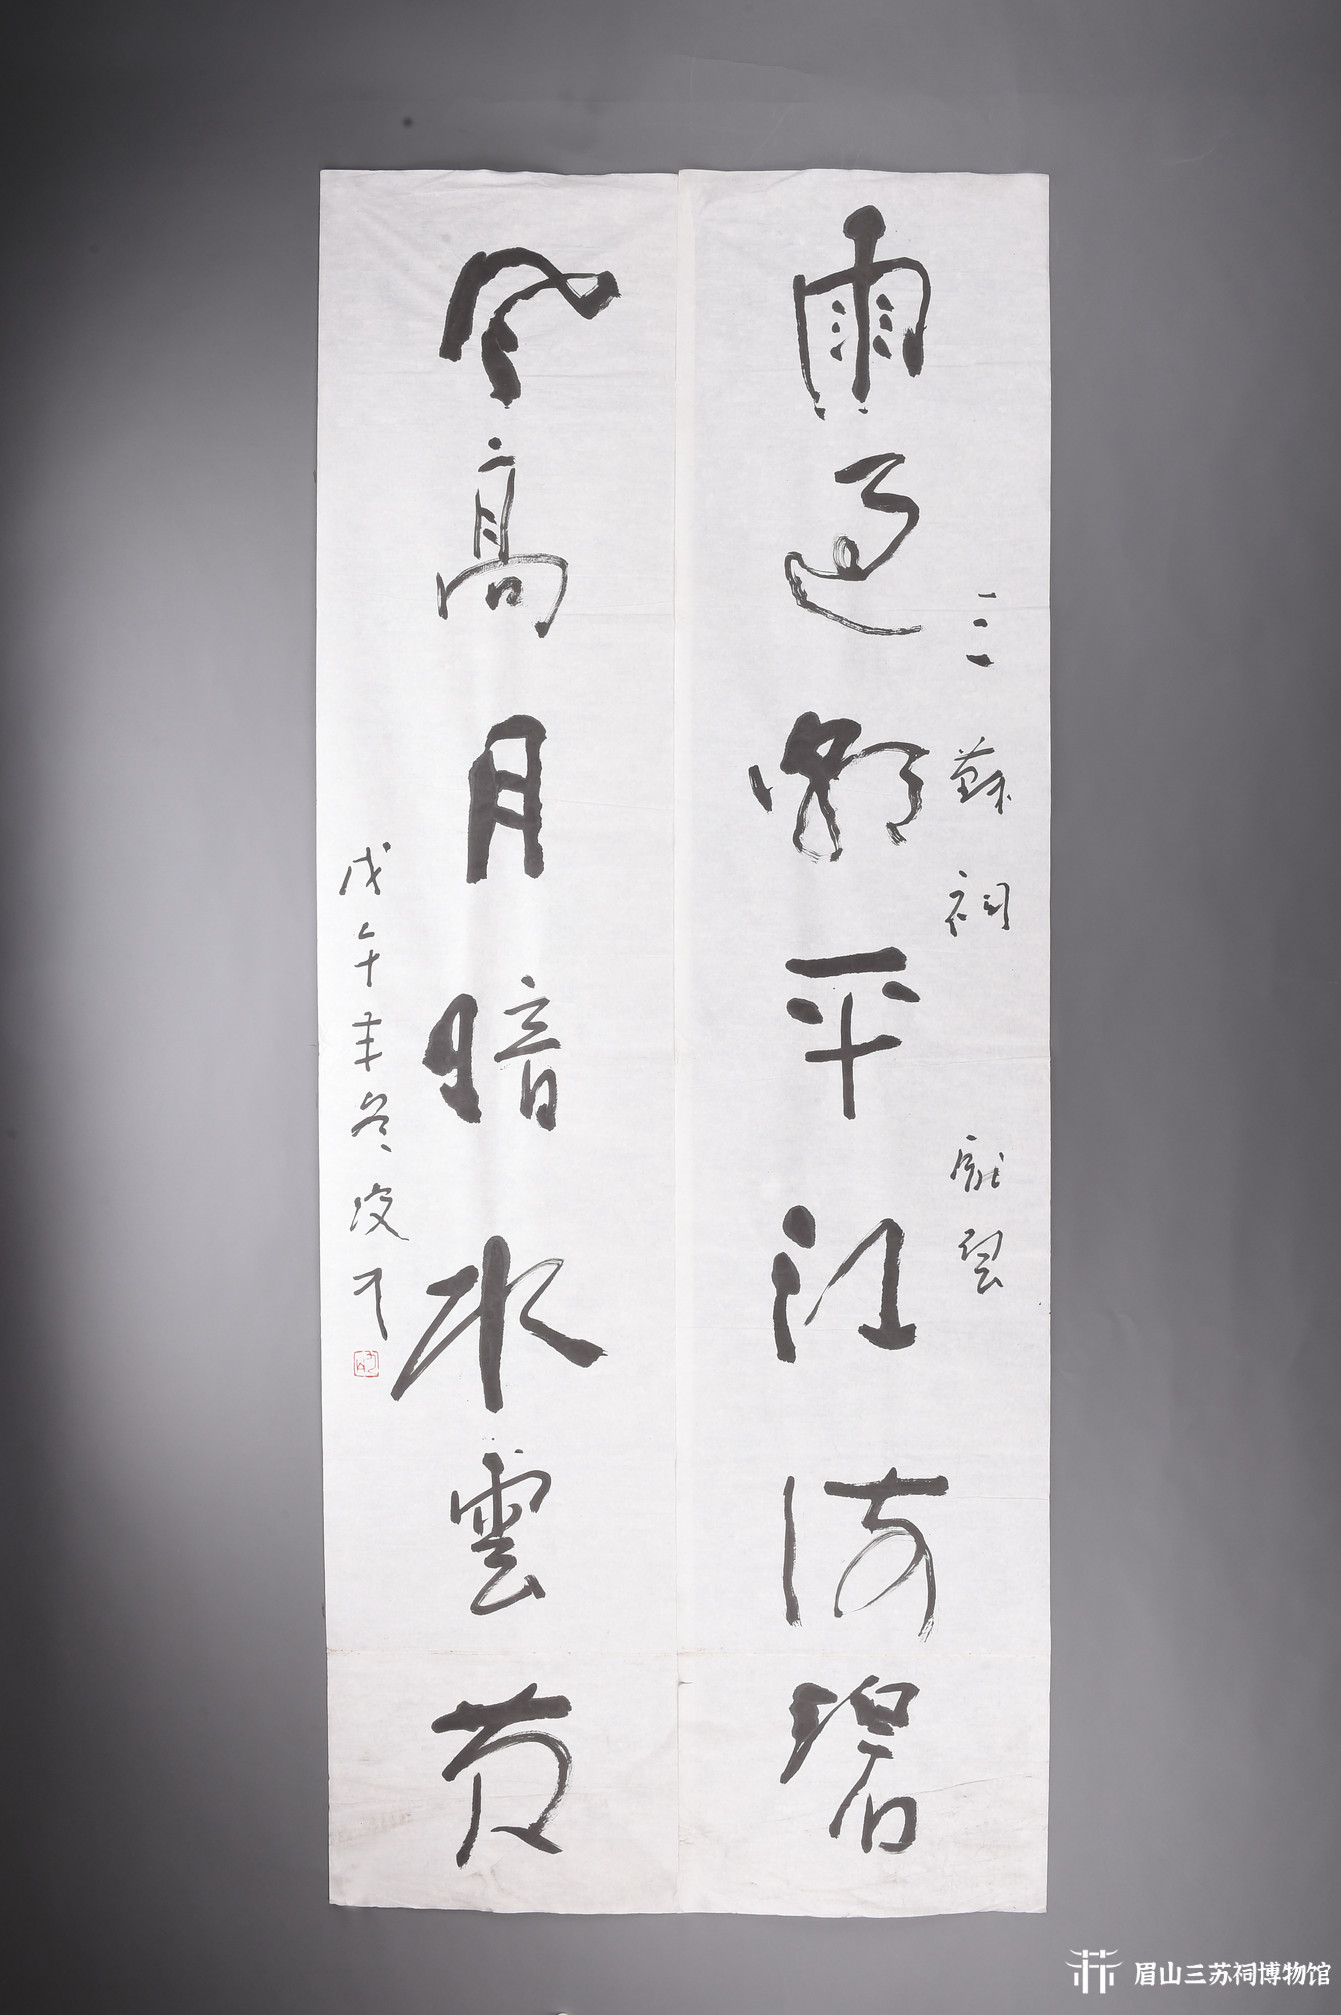 三蘇祠
雨過潮平江海碧
風高月暗水雲黄
戊午年冬
眉山三苏祠博物馆